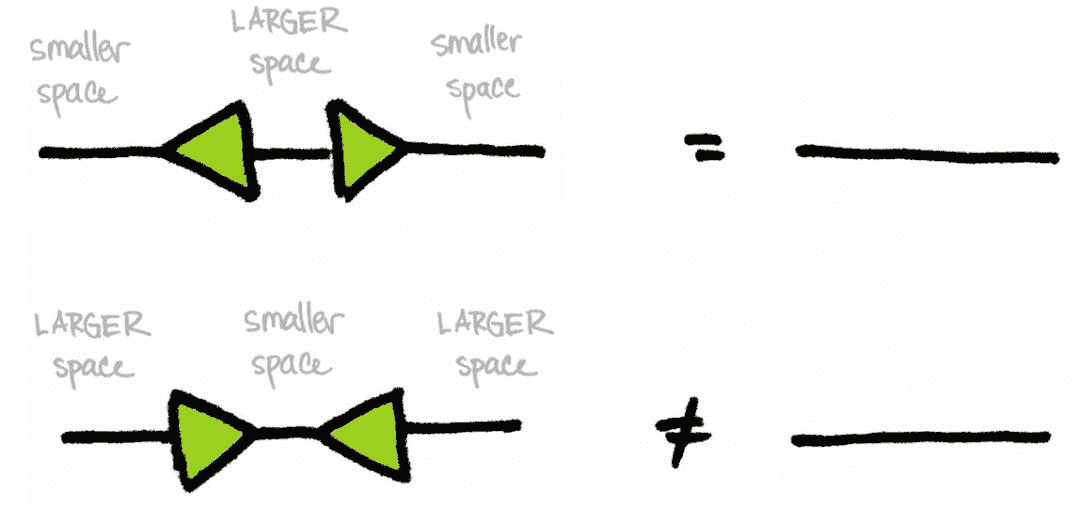 smaller
space
LARGER
space
smaller
space
=
LARGER
space
smaller
space
LARGER
space
≠